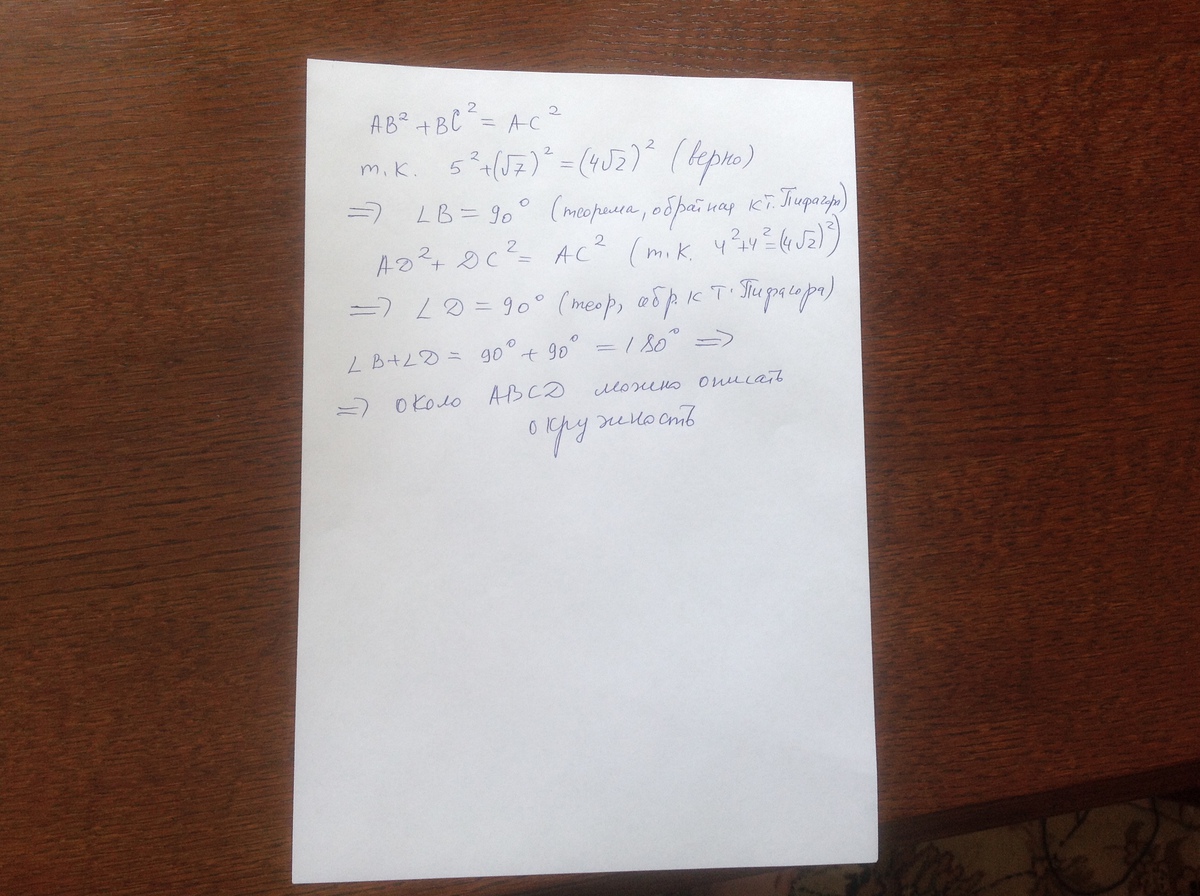 AB² + BC² = AC²
т.к. 5² + (√7)² = (4√2)² (верно)
=> ∠B = 90° (теорема, обратная к т. Пифагора)
AD² + DC² = AC² (т.к. 4² + 4² = (4√2)²)
=> ∠D = 90° (теор, обр. к т. Пифагора)
∠B + ∠D = 90° + 90° = 180° =>
=> около ABCD можно описать
окружность